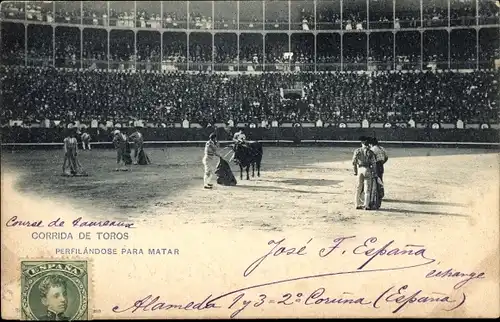 Course de Taureaux
CORRIDA DE TOROS
PERFILÁNDOSE PARA MATAR
José F. España
exchange
ESPAÑA
Alameda 1 y 3 - 2º Coruña (España)